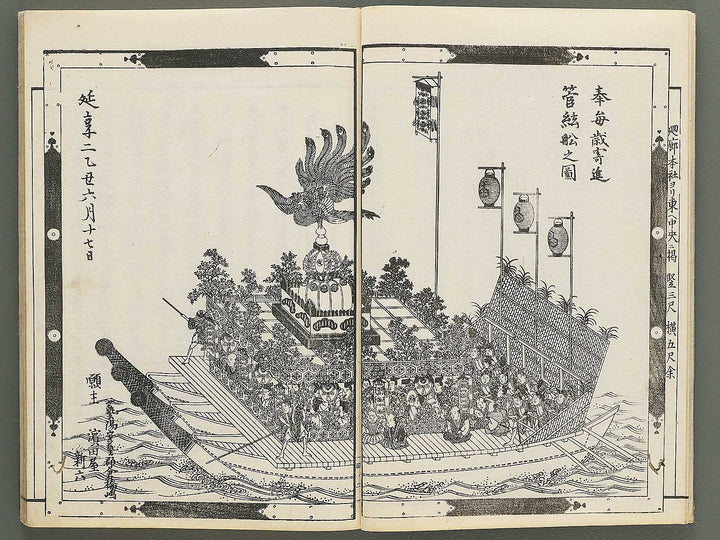 廻廊本社ヨリ東ヘ中央ニ掲 竪三尺 横五尺余
奉毎歳寄進
管絃舩之圖
延享二乙丑六月十七日
願主
濱田屋
新六